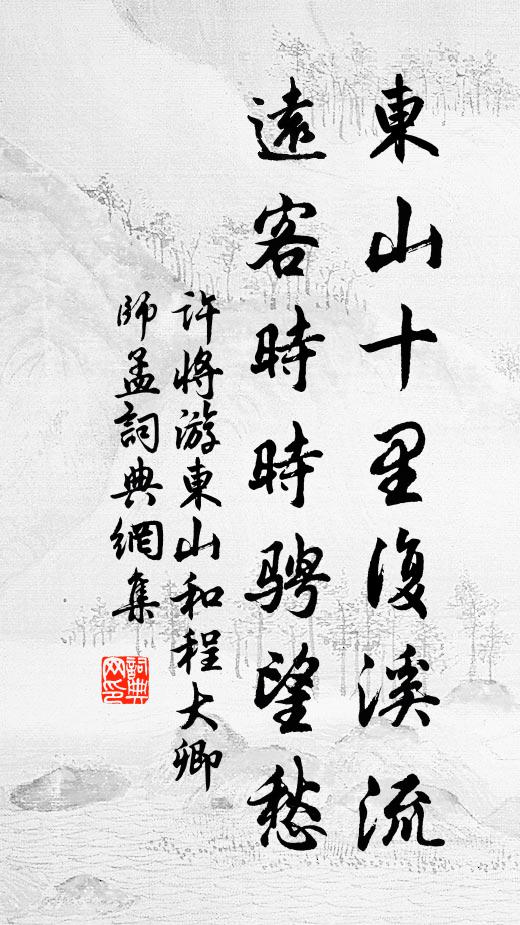 東山十里復溪流
遠客時時骋望愁
許將游東山和程大卿
師孟詞典網集
詞典
网印